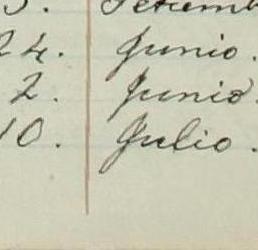 5. Setemb
24. Junio.
2. Junio.
10. Julio.